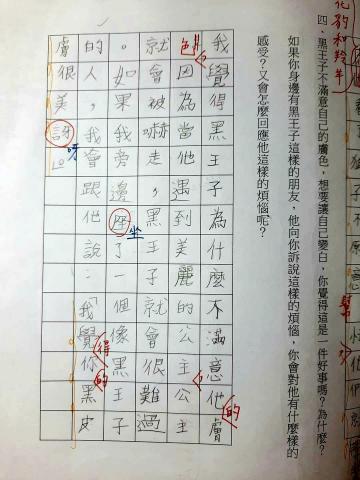 花豹和羚羊
四、黑王子不滿意自己的膚色，想要讓自己變白，你覺得這是一件好事嗎？為什麼？
如果你身邊有黑王子這樣的朋友，他向你訴說這樣的煩惱，你會對他有什麼樣的
感受？又會怎麼回應他這樣的煩惱呢？
我覺得黑王子為什麼不滿意他的膚
色，因為當他遇到美麗的公主，公主
就會被嚇走，黑王子就會很難過
。如果我旁邊座坐了一個像黑王子
的人，我會跟他說：「我覺得你的黑皮
膚很美訝呀」